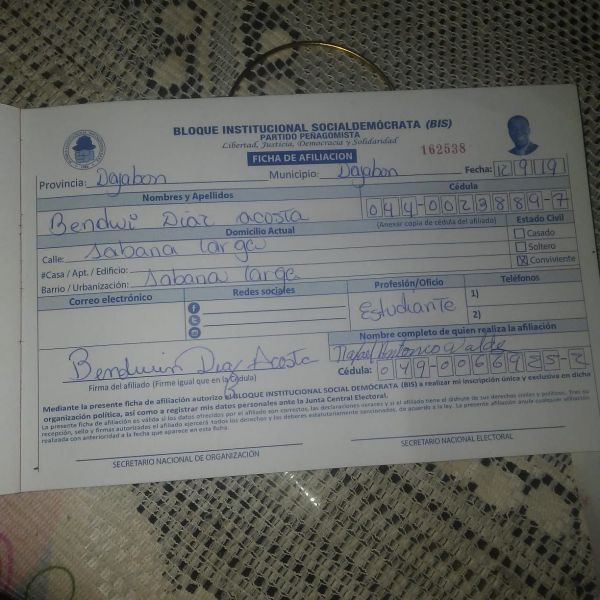 BLOQUE INSTITUCIONAL SOCIALDEMÓCRATA (BIS)
PARTIDO PEÑAGOMISTA
Libertad, Justicia, Democracia y Solidaridad
FICHA DE AFILIACION
162538
Provincia: Dajabon Municipio: Dajabon Fecha: 12 9 19
Nombres y Apellidos Cédula
Bendwi Díaz acosta 044-0023889-7
(Anexar copia de cédula del afiliado)
Domicilio Actual Estado Civil
Calle: Sabana larga Casado
#Casa / Apt. / Edificio: Soltero
Barrio / Urbanización: Sabana larga Conviviente
Correo electrónico Redes sociales Profesión/Oficio Teléfonos
Estudiante 1)
2)
Nombre completo de quien realiza la afiliación
Bendwin Diaz Acosta
Firma del afiliado (Firme igual que en la Cédula) Cédula:
Mediante la presente ficha de afiliación autorizo el BLOQUE INSTITUCIONAL SOCIAL DEMÓCRATA (BIS) a realizar mi inscripción única y exclusiva en dicha
organización política, así como a registrar mis datos personales ante la Junta Central Electoral.
La presente ficha de afiliación es válida si los datos ofrecidos por el afiliado son correctos, las declaraciones veraces y si el afiliado tiene el disfrute de sus derechos civiles y políticos. Tras su
recepción, sello y firmas autorizadas el afiliado ejercerá todos los derechos y los deberes estatutariamente sancionados, de acuerdo a la ley. La presente afiliación anula cualquier afiliación
realizada con anterioridad a la fecha que aparece en esta ficha.
SECRETARIO NACIONAL DE ORGANIZACIÓN SECRETARIO NACIONAL ELECTORAL